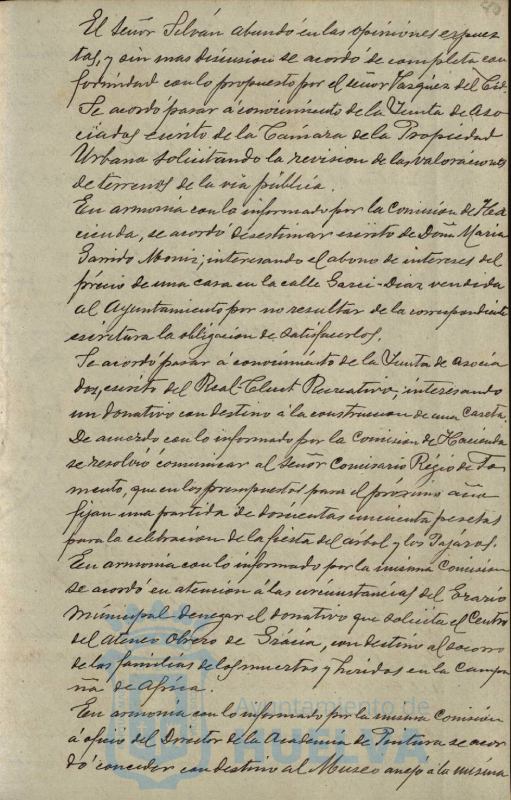 El Señor Silván abundó en las opiniones expues
tas, y sin mas discusion se acordó de completa con
formidad con lo propuesto por el señor Vazquez del Cid.
Se acordó pasar á conocimiento de la Junta de Aso
ciados escrito de la Camara de la Propiedad
Urbana solicitando la revision de las valoraciones
de terrenos de la via pública.
En armonia con lo informado por la Comisión de Ha
cienda, se acordó desestimar escrito de Doña Maria
Garrido Moniz, interesando el abono de intereses del
precio de una casa en la calle Garci-Diaz vendida
al Ayuntamiento por no resultar de la correspondiente
escritura la obligacion de satisfacerlos.
Se acordó pasar á conocimiento de la Junta de asocia
dos, escrito del Real-Club Recreativo, interesando
un donativo con destino á la construccion de una caseta.
De acuerdo con lo informado por la Comision de Hacienda
se resolvió comunicar al señor Comisario Régio de Fo
mento, que en los presupuestos para el próximo año
fijan una partida de doscientas cincuenta pesetas
para la celebracion de la fiesta del arbol y los Pajáros.
En armonia con lo informado por la misma Comision
se acordó en atencion á las circunstancias del Erario
Municipal denegar el donativo que solicita el Centro
del Ateneo Obrero de Grácia, con destino al socorro
de las familias de los muertos y heridos en la Campa
ña de Africa.
En armonia con lo informado por la misma Comisión
á oficio del Director de la Academia de Pintura se acor
dó conceder con destino al Museo anejo á la misma
Ayuntamiento de
HUELVA